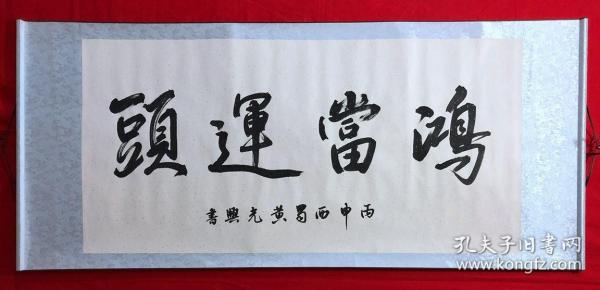 鴻當運頭
丙申西蜀黄光興書
孔夫子旧书网
www.kongfz.com